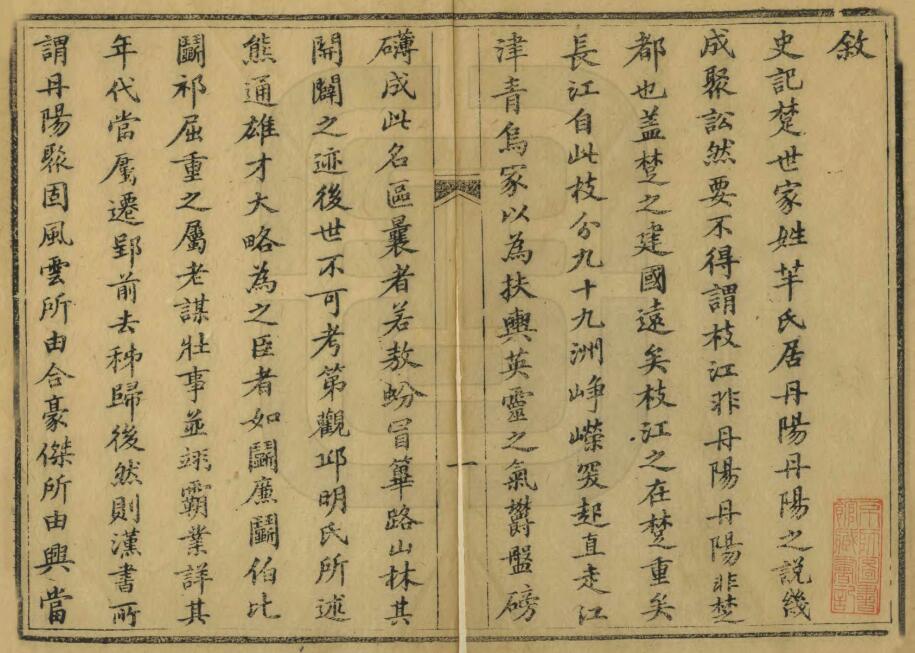 敘
史記楚世家姓芈氏居丹陽丹陽之說幾
成聚訟然要不得謂枝江非丹陽丹陽非楚
都也盖楚之建國遠矣枝江之在楚重矣
長江自此枝分九十九洲崢嶸突起直走江
津青烏家以為扶輿英靈之氣鬱盤磅
礴成此名區曩者若敖蚡冒篳路山林其
開闢之迹後世不可考第觀邱明氏所述
熊通雄才大略為之臣者如鬭廉鬭伯比
鬭祁屈重之屬老謀壯事並翊霸業詳其
年代當屬遷郢前去秭歸後然則漢書所
謂丹陽聚固風雲所由合豪傑所由興當
一